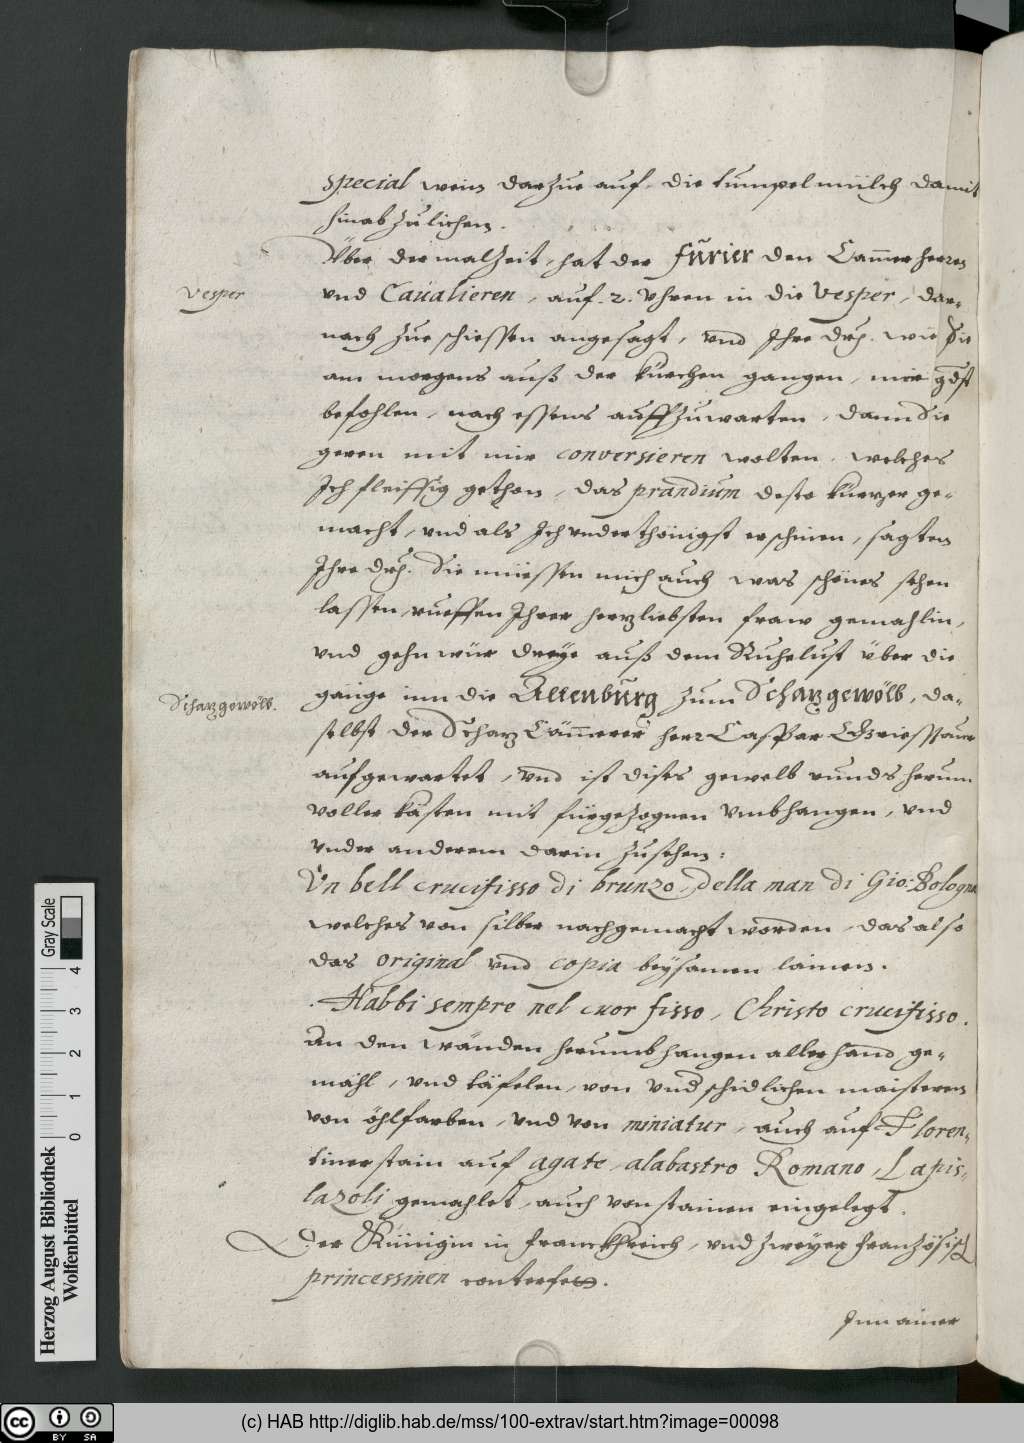 special wein darzue auf, die tumpel müilch damit
hinab zu lichen.
Über der malzeit, hat der fürier den Cam̄erherren
Vesper
vnd Caualieren, auf .2. Vhren in die Vesper, dar-
nach zue schiessen angesagt, vnd Ihre drh. wie Sie
am morgens auß der kürchen gangen, mir gdst
befohlen, nach essens auffzuwarten, dann Sie
geren mit mir conversieren wolten, welches
Ich fleissig gethon, das prandium desto kürzer ge-
macht, vnd als Ich vnderthönigst erschinen, sagten
Ihre drh. Sie müessen mich auch was schönes sehen
lassen, rueffen Ihrer herzliebsten fraw gemahlin,
vnd gehn wür dreye auß dem Ruhelust über die
Schazgewölb.
gänge inn die Altenburg zum Schazgewölb, da-
selbst der Schaz Cäm̄erer herr Caspar Griessauer
aufgewartet, vnd ist dises gewelb runds herum
voller kästen mit fürgezognen vmbhangen, vnd
vnder anderem darin zusehen:
Vn bell crucifisso di brunzo, della man di Gio: Bologna
welches von silber nachgemacht worden, das also
das original vnd copia beysamen lainen.
Habbi sempre nel cuor fisso, Christo crucifisso.
An den wänden herumb hangen allerhand ge-
mähl, vnd täfelen, von vndschidlichen maisteren
von öhlfarben, vnd von miniatur, auch auf Floren-
tiner stain auf agate, alabastro Romano, Lapis-
lazoli gemahlet, auch von stainen eingelegt.
Der Künigin in franckhreich, vnd zweyer französisch
princessinen conterfet.
Inn ainer
Herzog August Bibliothek
Wolfenbüttel
0 1 2 3 4
Gray Scale
cc BY SA
(c) HAB http://diglib.hab.de/mss/100-extrav/start.htm?image=00098